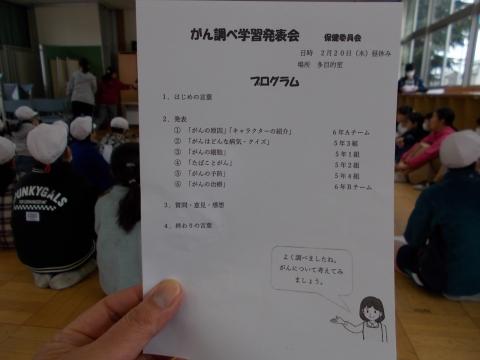 がん調べ学習発表会　保健委員会
日時　２月２０日（木）昼休み
場所　多目的室
プログラム
１．はじめの言葉
２．発表
①　「がんの原因」「キャラクターの紹介」　６年Aチーム
②　「がんはどんな病気・クイズ」　５年３組
③　「がんの細胞」　５年１組
④　「たばことがん」　５年２組
⑤　「がんの予防」　５年４組
⑥　「がんの治療」　６年Bチーム
３．質問・意見・感想
４．終わりの言葉
よく調べましたね。
がんについて考えてみ
ましょう。
FUNKYGALS